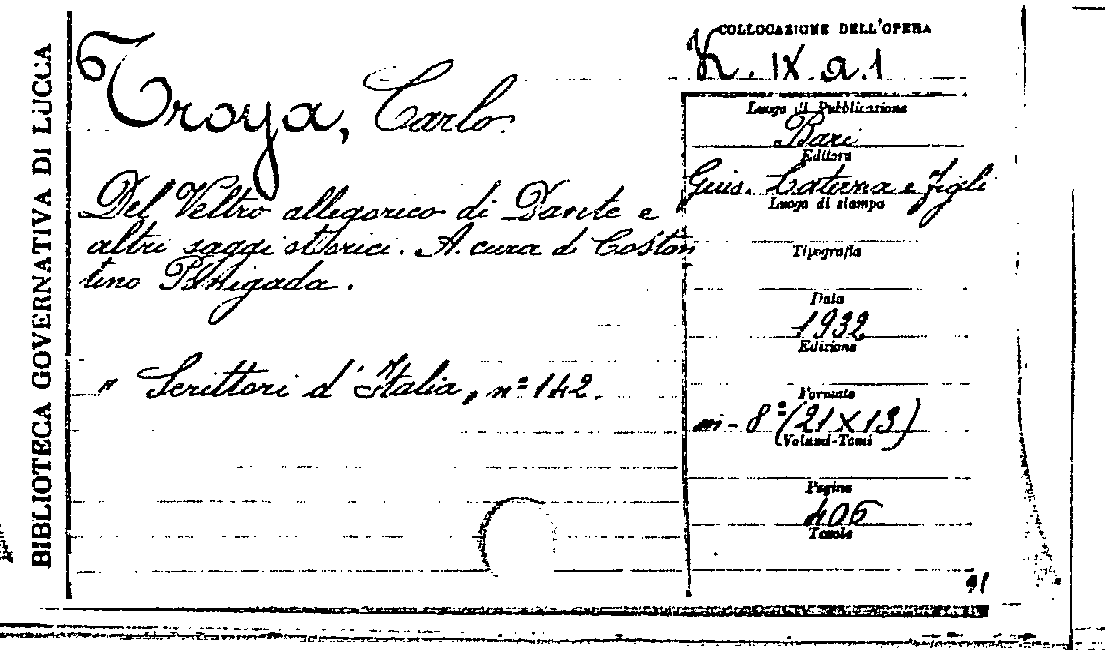 BIBLIOTECA GOVERNATIVA DI LUCCA
Troya, Carlo
Del Veltro allegorico di Dante e
altri saggi storici. A cura di Costan
tino Panigada.
"Scrittori d'Italia" nº 142.
COLLOCAZIONE DELL'OPERA
K. IX. a. 1
Luogo di Pubblicazione
Bari
Editore
Gius. Laterza e figli
Luogo di stampa
Tipografia
Data
1932
Edizione
Formato
in-8º (21X13)
Volumi-Tomi
Pagine
406
Tavole